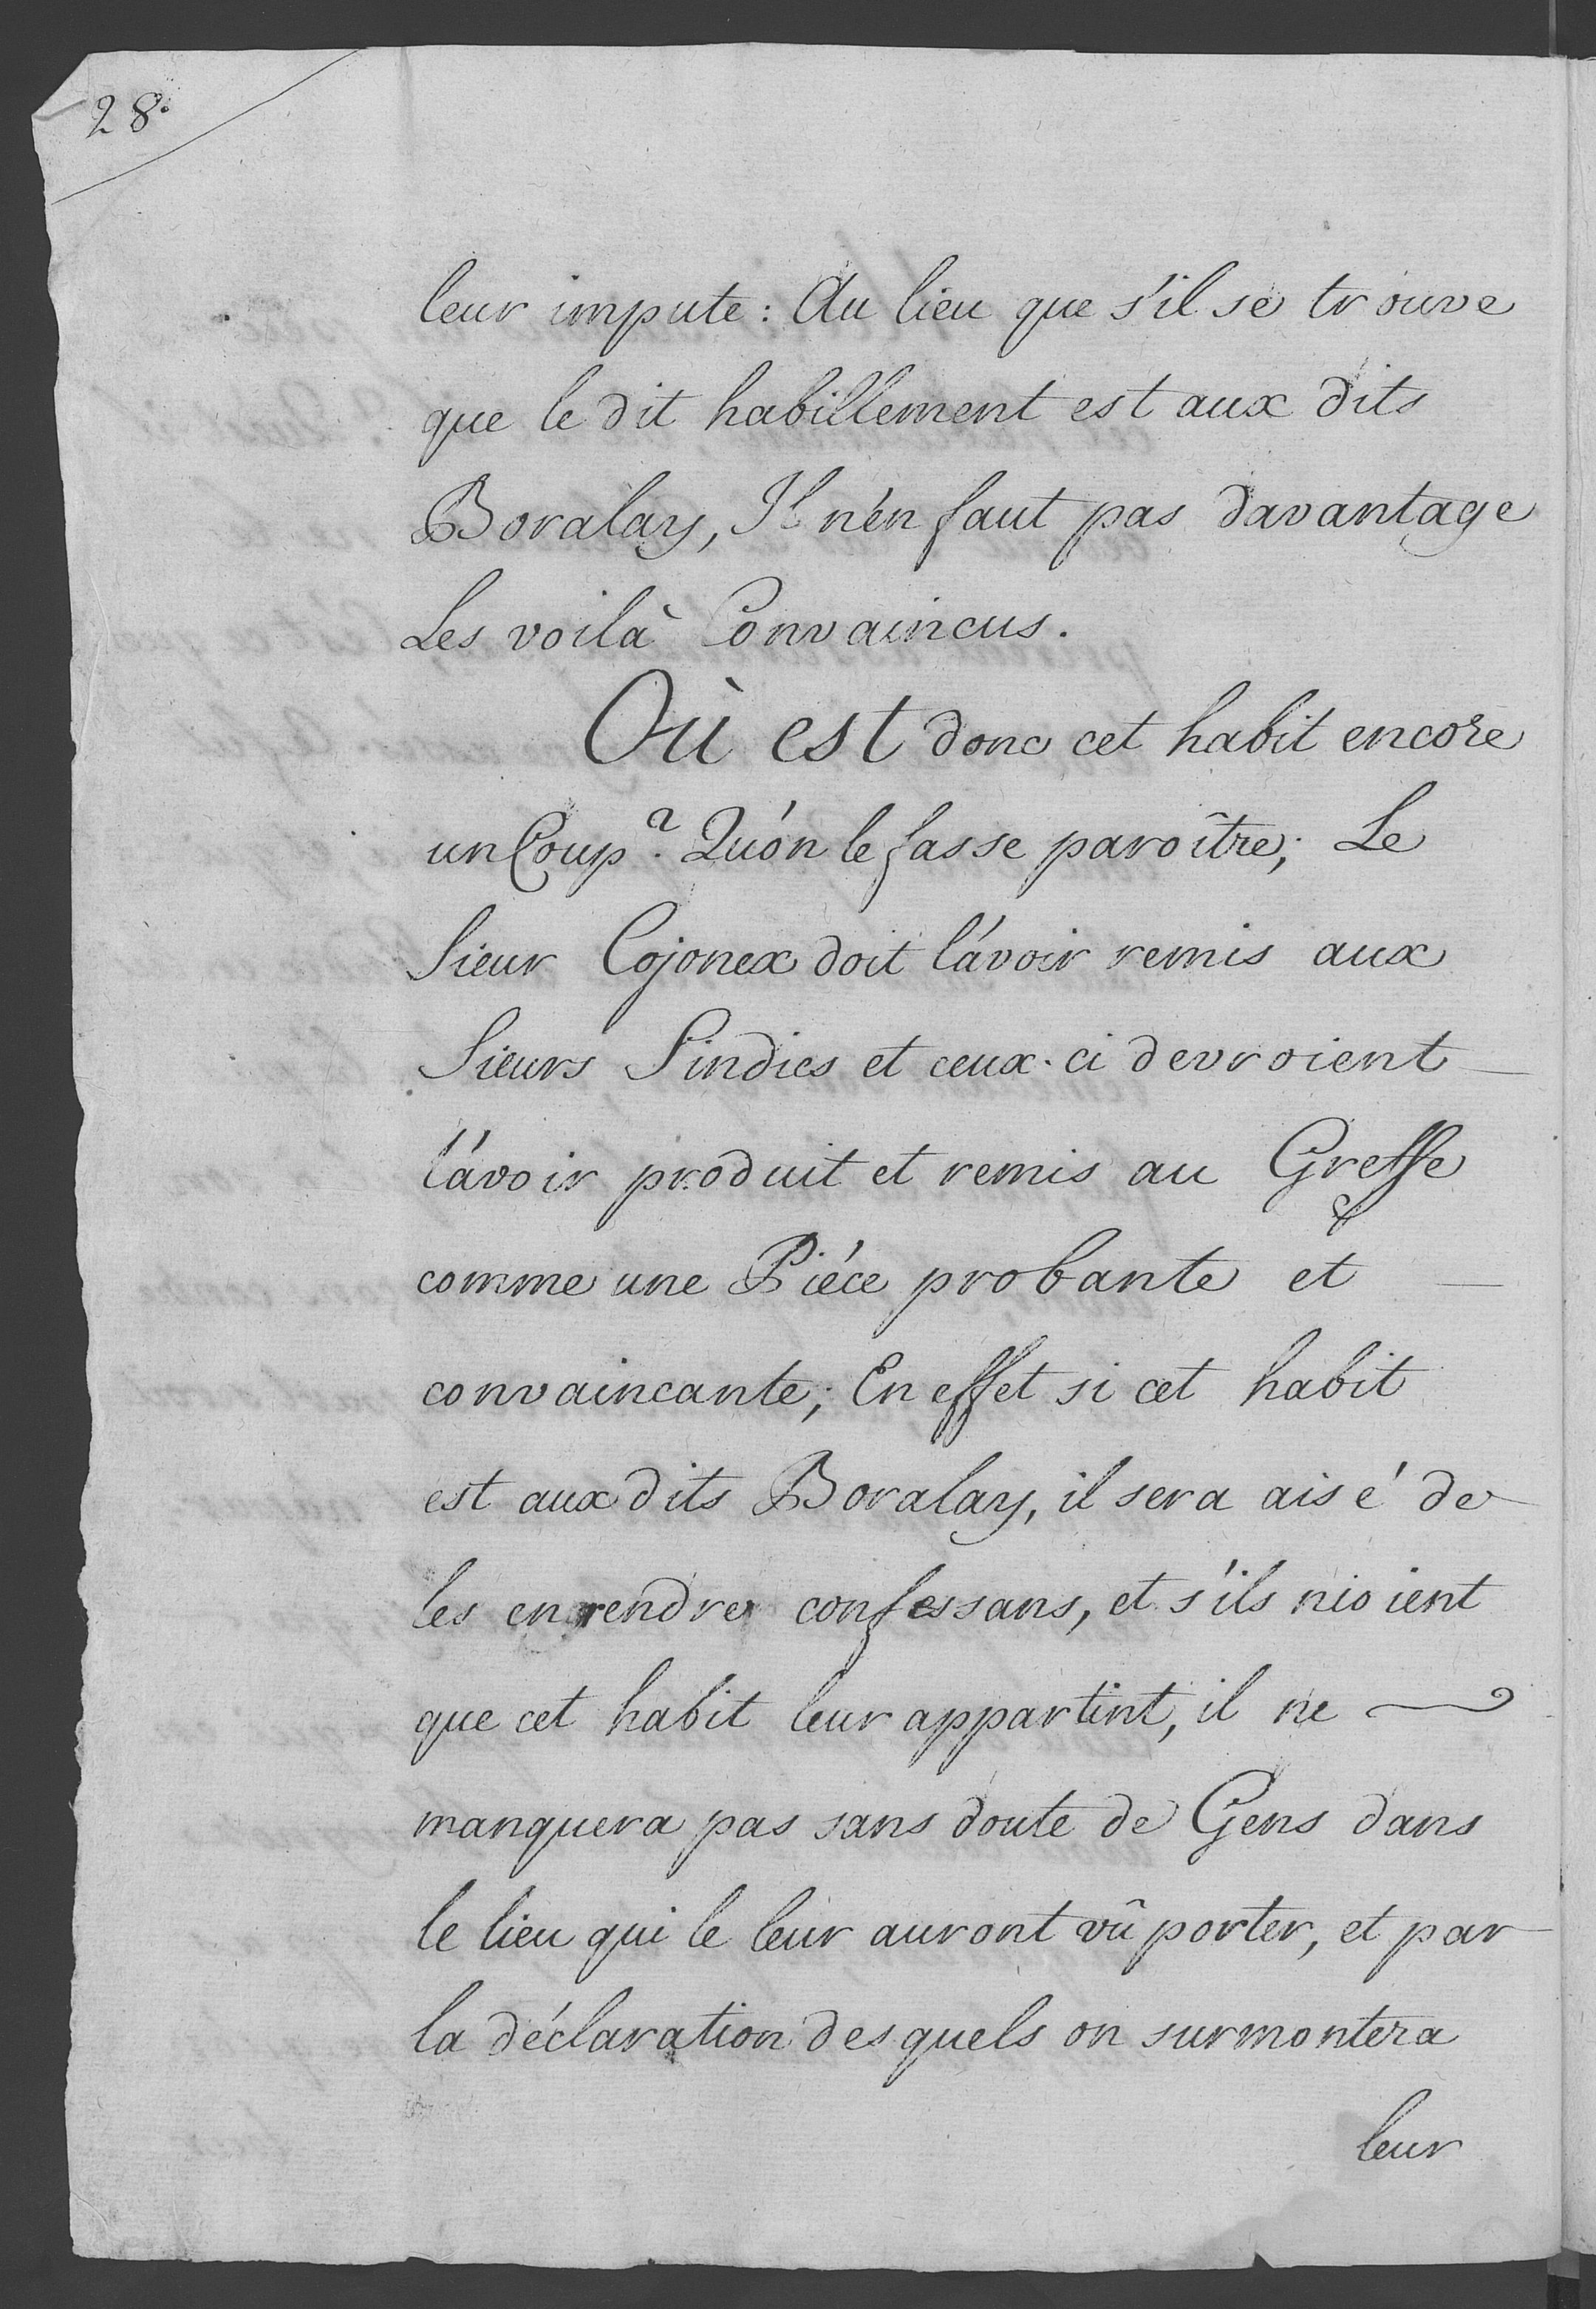 28.
leur impute : Au lieu que s'il se trouve
que le dit habillement est aux dits
Boralay, Il n'en faut pas davantage
Les voilà Convaincus.
Où est donc cet habit encore
un Coup ? Qu'on le fasse paroître; Le
Sieur Cojonex doit l'avoir remis aux
Sieurs Sindics et ceux-ci devroient
l'avoir produit et remis au Greffe
comme une Piéce probante et
convaincante; En effet si cet habit
est aux dits Boralay, il sera aisé de
les en rendre confessans, et s'ils nioient
que cet habit leur appartint, il ne
manquera pas sans doute de Gens dans
le lieu qui le leur auront vû porter, et par
la déclaration desquels on surmontera
leur